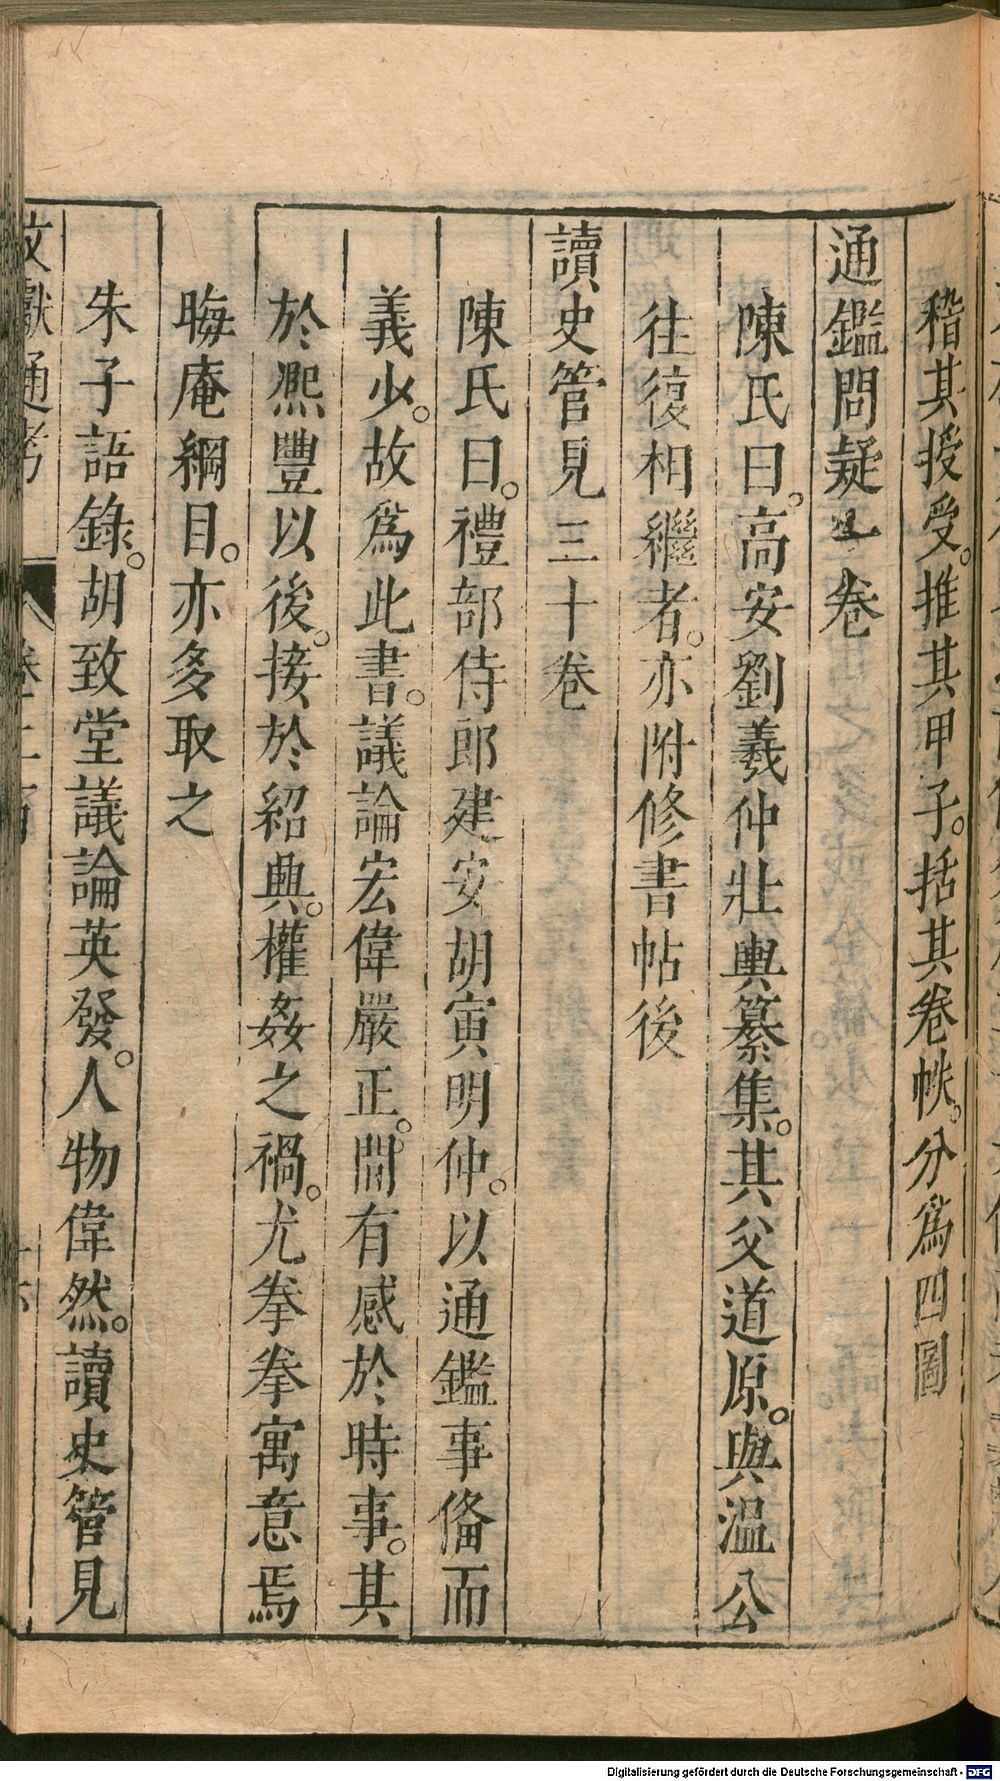 稽其授受。推其甲子。括其卷帙。分爲四圖
通鑑問疑一卷
陳氏曰。高安劉羲仲壯輿纂集。其父道原。與溫公
往復相繼者。亦附修書帖後
讀史管見三十卷
陳氏曰。禮部侍郎建安胡寅明仲。以通鑑事俻而
義少。故爲此書。議論宏偉嚴正。間有感於時事。其
於熈豐以後。接於紹興。權姦之禍。尤拳拳寓意焉
晦庵綱目。亦多取之
朱子語錄。胡致堂議論英發。人物偉然。讀史管見
文獻通考
Digitalisierung gefördert durch die Deutsche Forschungsgemeinschaft - DFG